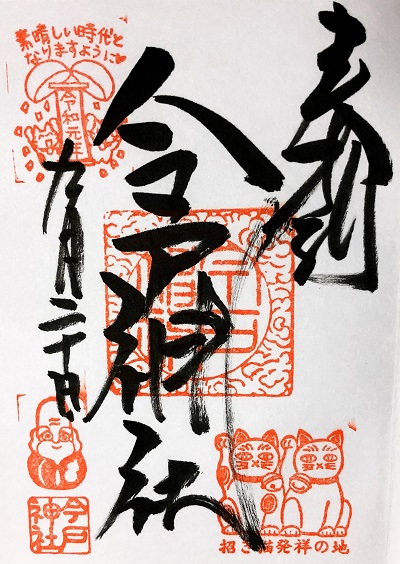 奉拝
今戸神社
素晴しい時代と
なりますように♥
令和元年
九月二十日
今戸
神社
招き猫発祥の地